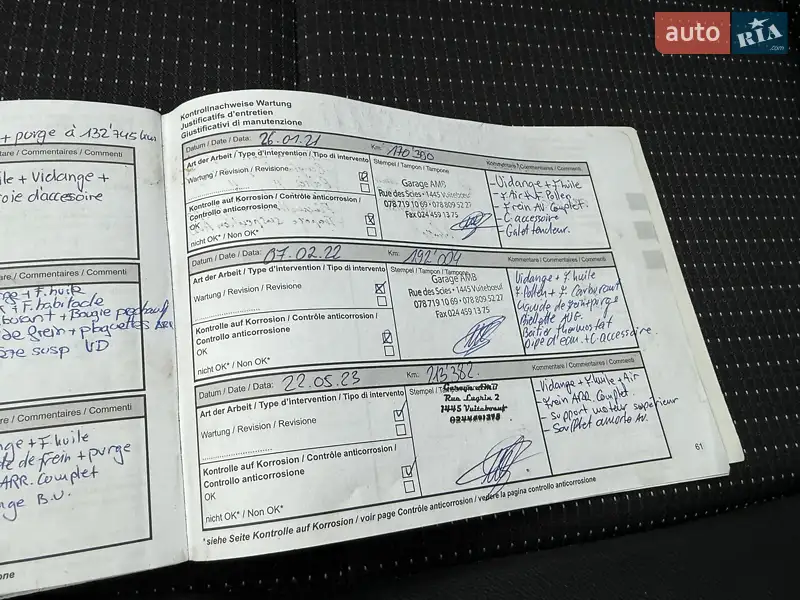 auto RIA .com
+ purge à 132'745 km
tare / Commentaires / Commenti
ile + Vidange +
roie d'accesoire
tare / Commentaires / Commenti
ge + F. huile
+ F. habitacle
+ Bougie
de frein + plaquettes ARR
susp VD
/ Commentaires / Commenti
nge + F. huile
te de frein + purge
ARR. Complet
nge B.V.
one
Kontrollnachweise Wartung
Justificatifs d'entretien
Giustificativi di manutenzione
Datum / Date / Data: 26.01.21 Km: 170'380
Art der Arbeit / Type d'intervention / Tipo di intervento
Wartung / Revision / Revisione
Kontrolle auf Korrosion / Contrôle anticorrosion /
Controllo anticorrosione
OK
nicht OK* / Non OK*
Stempel / Tampon / Tampone
Garage AMB
Rue des Scies • 1445 Vuiteboeuf
078 719 10 69 • 078 809 52 27
Fax 024 459 13 75
Kommentare / Commentaires / Commenti
- Vidange + F. huile
- F. Air + F. Pollen
- Frein AV. Complet.
- C. accessoire
- Galet tendeur.
Datum / Date / Data: 07.02.22 Km: 192'004
Art der Arbeit / Type d'intervention / Tipo di intervento
Wartung / Revision / Revisione
Kontrolle auf Korrosion / Contrôle anticorrosion /
Controllo anticorrosione
OK
nicht OK* / Non OK*
Stempel / Tampon / Tampone
Garage AMB
Rue des Scies • 1445 Vuiteboeuf
078 719 10 69 • 078 809 52 27
Fax 024 459 13 75
Kommentare / Commentaires / Commenti
Vidange + F. huile
F. Pollen + F. Carburant
Liquide de frein + purge
AVG.
Boitier thermostat
pipe d'eau. + C. accessoire.
Datum / Date / Data: 22.05.23 Km: 213'382.
Art der Arbeit / Type d'intervention / Tipo di intervento
Wartung / Revision / Revisione
Kontrolle auf Korrosion / Contrôle anticorrosion /
Controllo anticorrosione
OK
nicht OK* / Non OK*
Stempel / Tampon / Tampone
Garage AMB
1445 Vuiteboeuf
Kommentare / Commentaires / Commenti
- Vidange + F. huile + Air
- Frein ARR. Complet.
- Support moteur superieur
- Soufflet AV.
*siehe Seite Kontrolle auf Korrosion / voir page Contrôle anticorrosion / vedere la pagina controllo anticorrosione
61